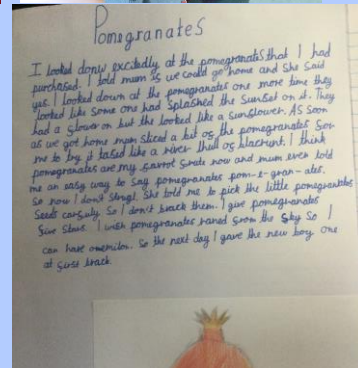 Pomegranates
I looked down excitedly at the pomegranats that I had
purchased. I told mum is we could go home and she said
yes. I looked down at the pomegranates one more time they
looked like some one had splashed the sunset on it. They
had a slower on but the looked like a sunslower. As soon
as we got home mum sliced a bit os the pomegranates sor
me to try it tased like a river thats os blackcurnt. I think
pomegranates are my savrot sruite now and mum even told
me an easy way to say pomegranates pom-e-gran-ates.
So now I don't strugl. She told me to pick the little pomegranates
seeds carsuly so I don't brack them. I give pomegranates
sive stars. I wish pomegranates raned srom the sky so I
can have onemilon. So the next day I gave the new boy one
at sirst brack